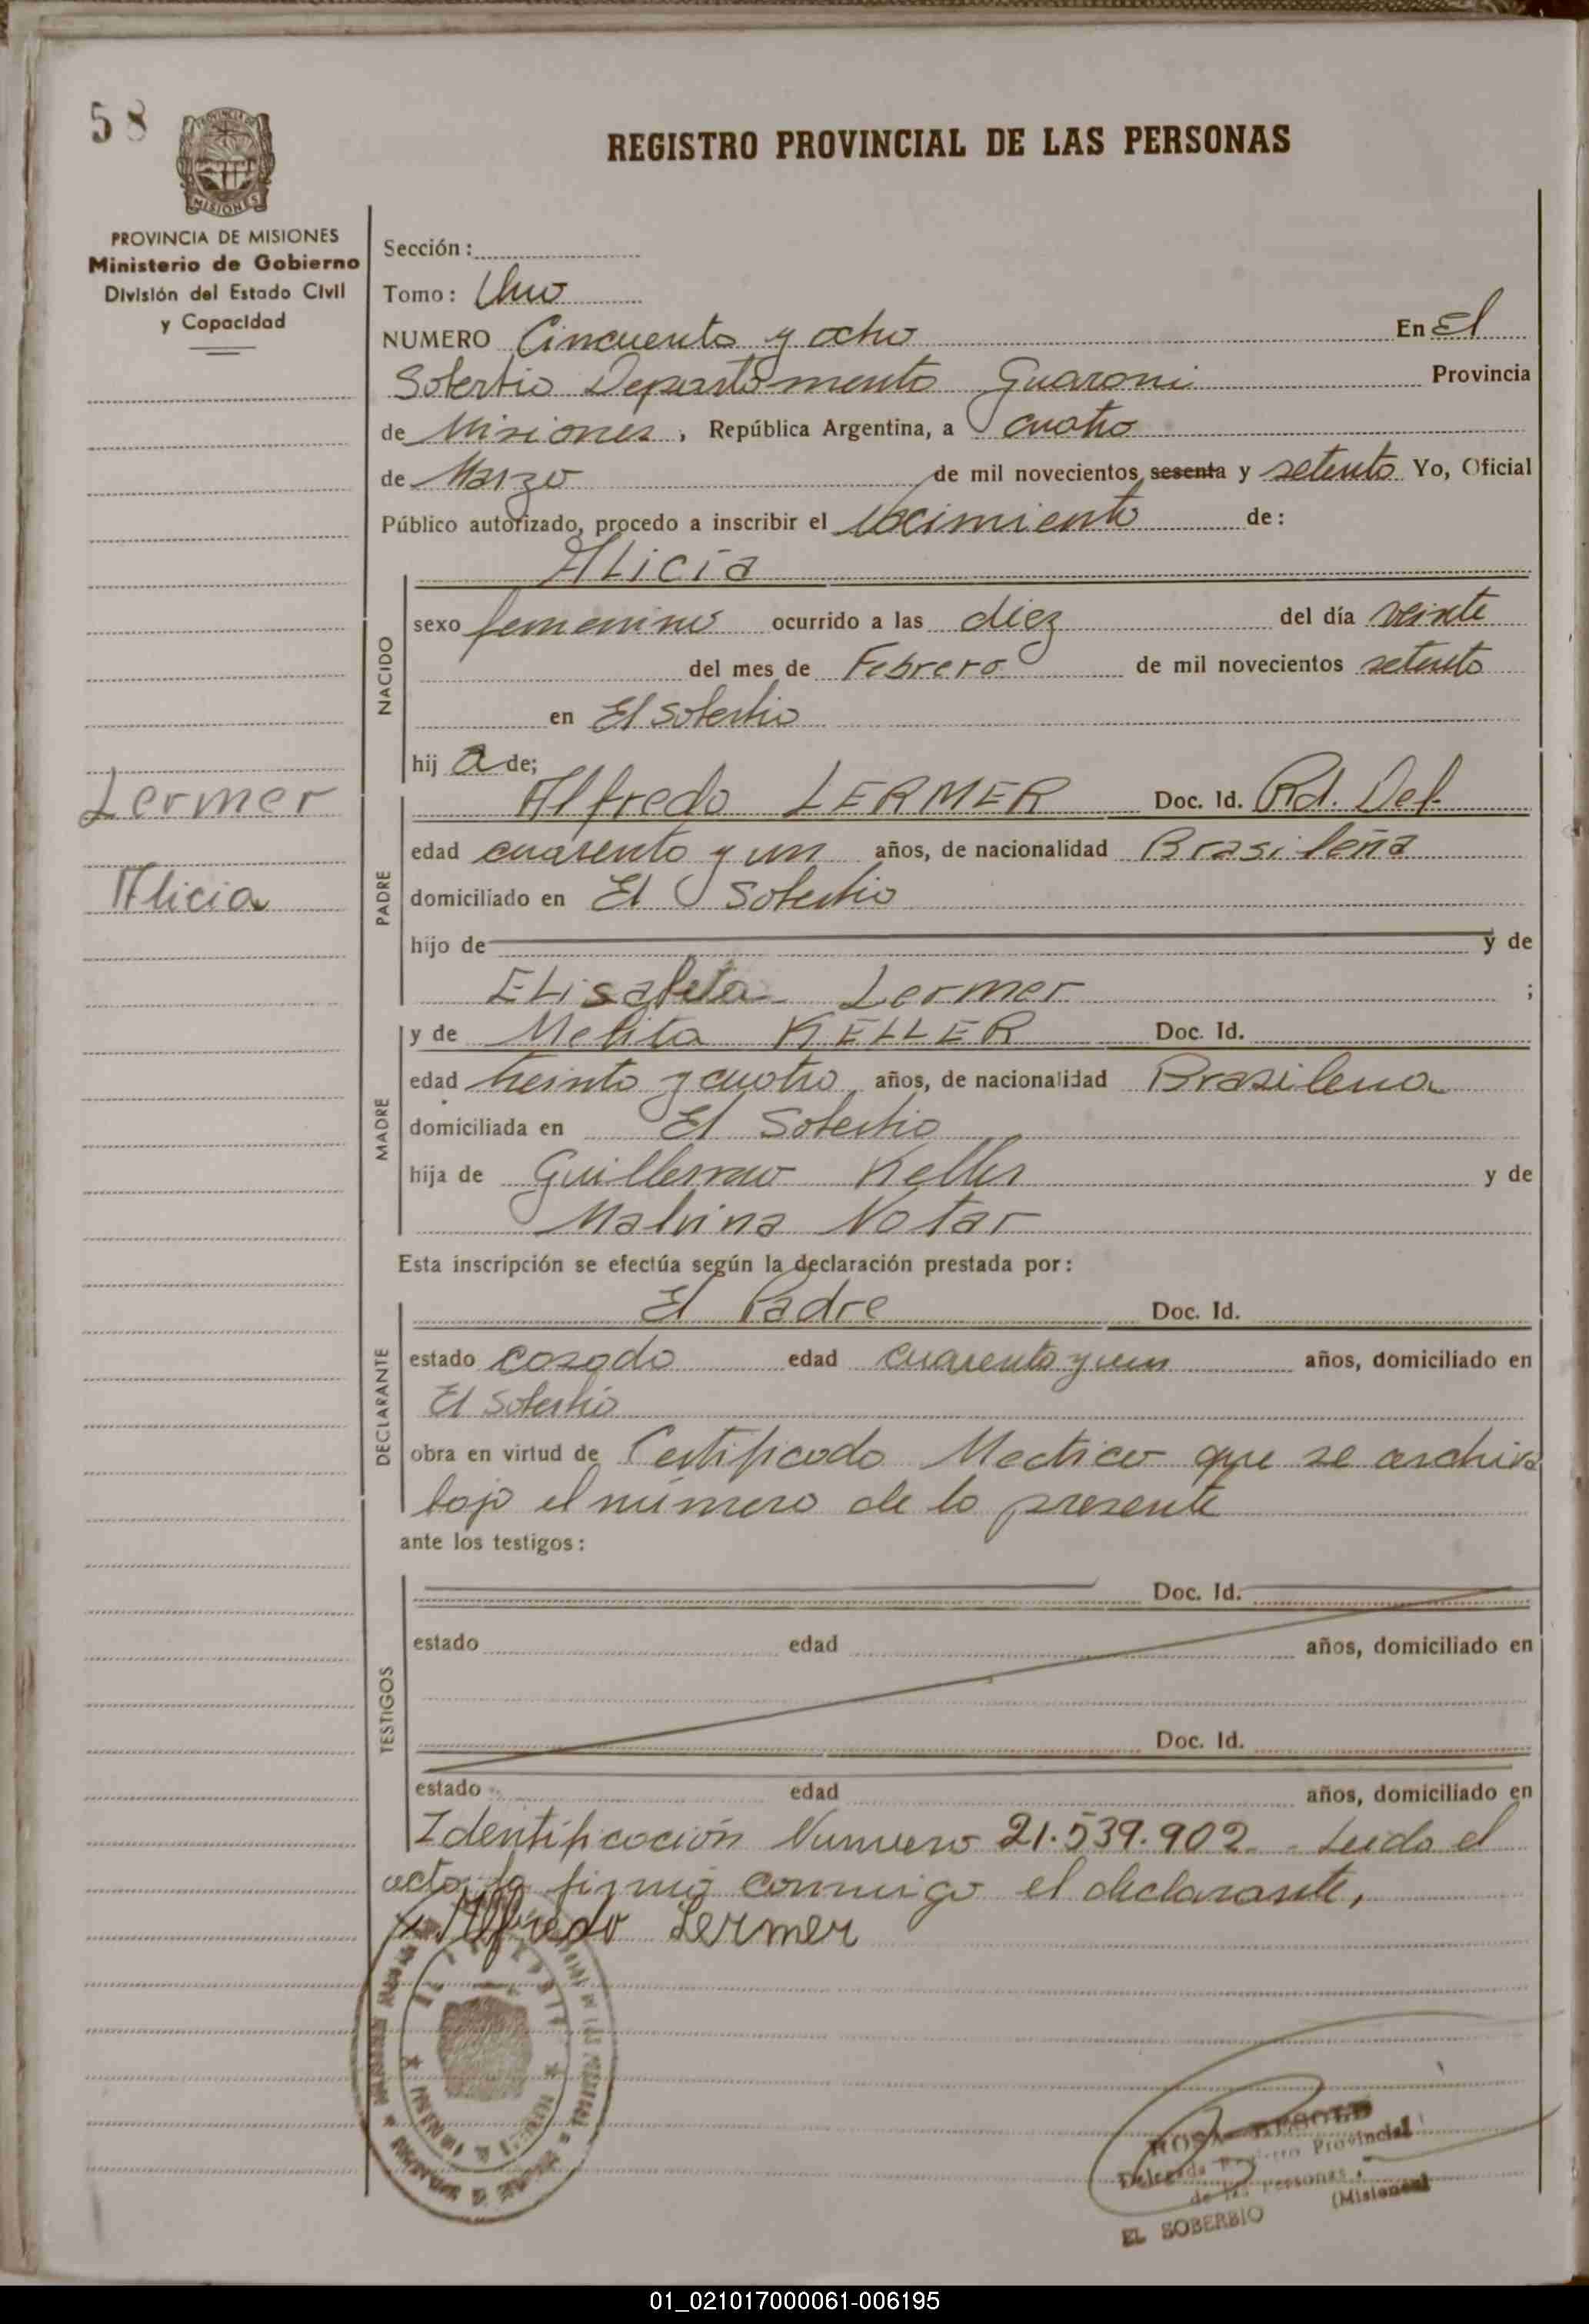 58
REGISTRO PROVINCIAL DE LAS PERSONAS
PROVINCIA DE MISIONES
Ministerio de Gobierno
División del Estado Civil
y Capacidad
Sección:
Tomo: Uno
NUMERO Cincuenta y ocho En El
Soberbio Departamento Guarani Provincia
de Misiones, República Argentina, a cuatro
de Marzo de mil novecientos sesenta y setenta Yo, Oficial
Público autorizado, procedo a inscribir el Nacimiento de:
Alicia
NACIDO
sexo femenino ocurrido a las diez del día veinte
del mes de Febrero de mil novecientos setenta
en El Soberbio
hij a de;
Lermer
Alicia
PADRE
Alfredo LERMER Doc. Id. Rd. Def.
edad cuarenta y un años, de nacionalidad Brasileña
domiciliado en El Soberbio
hijo de y de
Elisabeta Lermer ;
MADRE
y de Melita KELLER Doc. Id.
edad treinta y cuatro años, de nacionalidad Brasilena
domiciliada en El Soberbio
hija de Guillermo Keller y de
Malvina Notar
Esta inscripción se efectúa según la declaración prestada por:
DECLARANTE
El Padre Doc. Id.
estado casado edad cuarenta y un años, domiciliado en
El Soberbio
obra en virtud de Certificado Medico que se archiva
bajo el número de la presente
ante los testigos:
TESTIGOS
Doc. Id.
estado edad años, domiciliado en
Doc. Id.
estado edad años, domiciliado en
Identificación Numero 21.539.902. Leida el
acta la firmó conmigo el declarante,
Alfredo Lermer
Provincial
de las Personas
(Misiones)
EL SOBERBIO
01_021017000061-006195